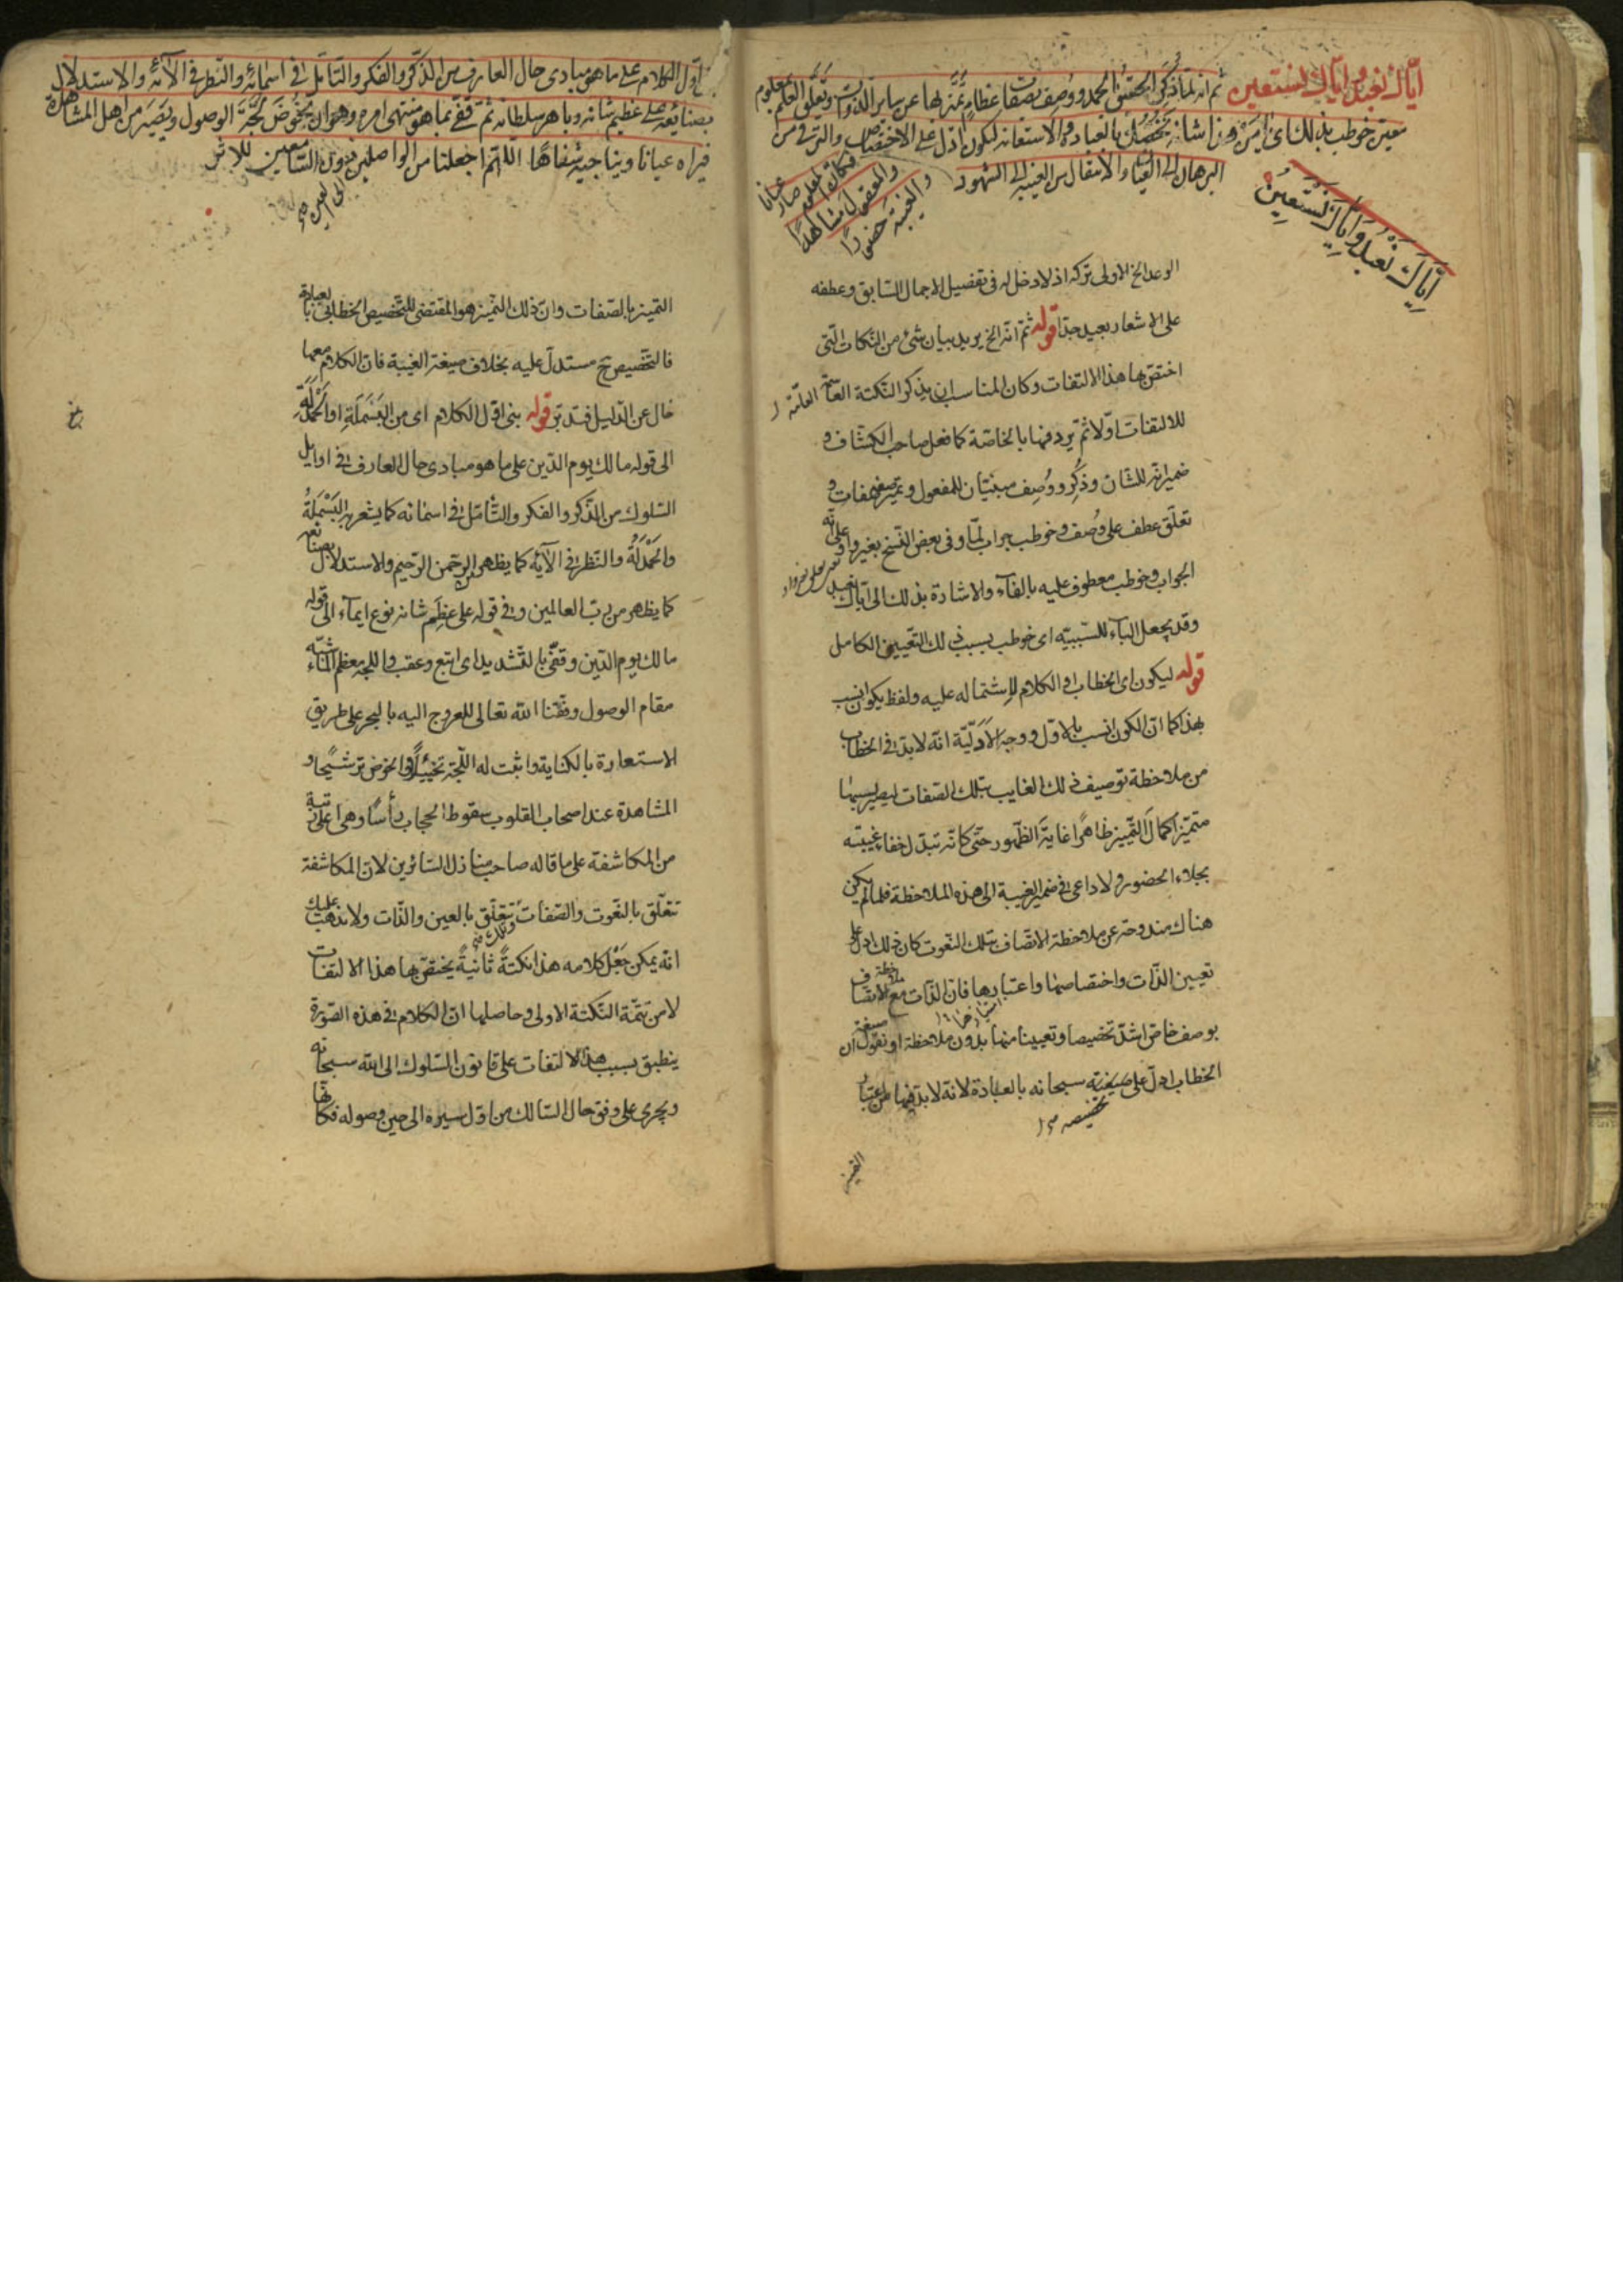 اياك نعبد واياك نستعين ثم انه لما ذكر الحقيق بالحمد ووصف بصفات عظام تميز بها عن ساير الذوات وتعلق العلم بمعلوم
معين خوطب بذلك اى يا من هذا شانه نخصك بالعبادة والاستعانه ليكون ادل على الاختصاص والترقى من
البرهان الى العيان والانتقال من الغيبة الى الشهود
فكان المعلوم صار عيانا
والمعقول مشاهدًا
والغيبة حضورًا
اِيَّاكَ نَعْبُدُ وَاِيَّاكَ نَسْتَعِينُ
الوعد الخ الاولى تركه اذ لا دخل له فى تفصيل الاجمال السابق وعطفه
على الاشعار بعيد جدّا قوله ثمّ انّه الخ يريد بيان شئ من النّكات الّتى
اختصّ بها هذا الالتفات وكان المناسب ان يذكر النّكتة العامّة
للالتفات اوّلا ثمّ يردفها بالخاصّة كما فعل صاحب الكشّاف و
ضمير انّه للشّان وذُكِر ووُصِف مبنيّان للمفعول وتميّز صفة صفات و
تعلّق عطف على وُصف وخوطب جواب لمّا وفى بعض النّسخ بغير واو
الجواب وخوطب معطوف عليه بالفآء والاشارة بذلك الى ايّاك نعبد
وقد يجعل البآء للسّببيّه اى خوطب بسبب ذلك التّعيين الكامل
قوله ليكون اى الخطاب او الكلام لاشتماله عليه ولفظ يكون انسب
بهذا كما انّ الكون انسب بالاوّل ووجه الاَدَلّيّة انّه لابدّ فى الخطاب
من ملاحظة توصيف ذلك الغايب بتلك الصّفات ليصير بسببها
متميّزا كمالَ التّميّز ظاهرًا غايةَ الظّهور حتّى كانّه تبدّل خفاء غيبته
بجلاء الحضور ولا داعى فى ضمير الغيبة الى هذه الملاحظة فلما لم يكن
هناك مندوحة عن ملاحظة الاتّصاف بتلك النّعوت كان ذلك ادلّ على
تعيين الذّات واختصاصها واعتبارها فانّ الذّات مع ملاحظة الاتّصاف
بوصف خاصّ اشدّ تخصيصا وتعيينا منها بدون ملاحظة او نقول انّ صيغة
الخطاب ادلّ على تخصيصه سبحانه بالعبادة لانّه لابدّ فيها من اعتبار
اوّل الكلام على ما هو مبادى حال العارف من الذّكر والفكر والتّامّل فى اسمائه والنّظر فى آلائه والاستدلال
بصنائعه على عظيم شانه وباهر سلطانه ثمّ قفى بما هو منتهى امره وهو ان يخوض لجّة الوصول ويصير من اهل المشاهدة
فيراه عيانا ويناجيه شفاهًا اللّهمّ اجعلنا من الواصلين
الى العين دون السّامعين للاثر
التميّز بالصّفات وانّ ذلك التّميّز هو المقتضى للتّخصيص الخطابى بالعبادة
فالتّخصيص ح مستدلّ عليه بخلاف صيغة الغيبة فانّ الكلام معها
خال عن الدّليل فتدبّر قوله بنى اوّل الكلام اى من البَسْمَلَةِ او الحَمْدَلَةِ
الى قوله مالك يوم الدّين على ما هو مبادى حال العارف فى اوايل
السّلوك من الذّكر والفكر والتّأمّل فى اسمائه كما يشعر به البَسْمَلَةُ
والحَمْدَلَةُ والنّظر فى آلآئه كما يظهر من الرّحمن الرّحيم والاستدلال بصنائعه
كما يظهر من ربّ العالمين وفى قوله على عظيم شانه نوع ايمآء الى قوله
مالك يوم الدّين وقفّى بالتّشديد اى اتبع وعقب واللجّة معظم المآء شبّه
مقام الوصول وفّقنا الله تعالى للعروج اليه بالبحر على طريق
الاستعارة بالكناية واثبت له اللّجّة تخييلًا والخوض ترشيحًا و
المشاهدة عند اصحاب القلوب سقوط الحجاب رأسًا وهى اعلى رتبة
من المكاشفة على ما قاله صاحب منازل السّائرين لانّ المكاشفة
تتعلّق بالنّعوت والصّفات وتلك تتعلّق بالعين والذّات ولا يذهب عليك
انّه يمكن جَعْل كلامه هذا نكتةً ثانيةً يختصّ بها هذا الالتفات
لا من تتمّة النّكتة الاولى وحاصلها انّ الكلام فى هذه الصّورة
ينطبق بسبب هذا الالتفات على قانون السّلوك الى الله سبحانه
ويجرى على وفق حال السّالك من اوّل سيره الى حين وصوله فكانّها